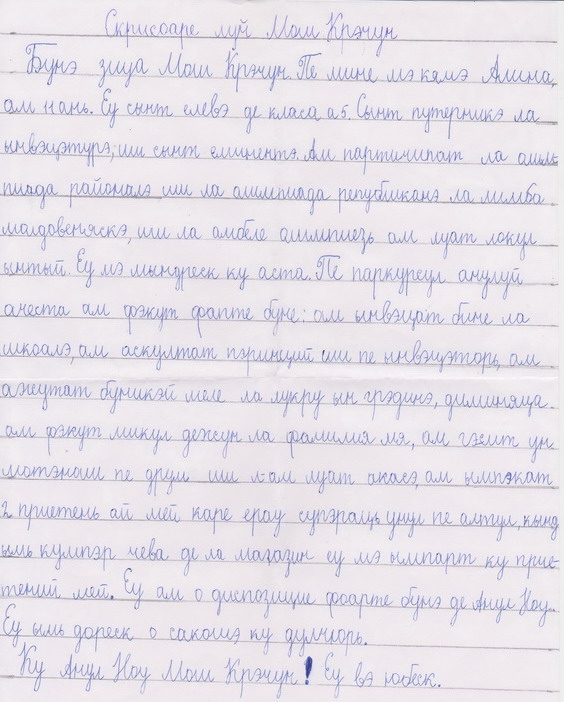 Скрисоаре луй Мош Крэчун
Бунэ зиуа Мош Крэчун. Пе мине мэ кямэ Алина,
ам 11 ань. Еу сынт елевэ де класа а 5. Сынт путерникэ ла
ынвэцэтурэ; ши сынт еминентэ. Ам партичипат ла олим-
пиада районалэ ши ла олимпиада републиканэ ла лимба
молдовеняскэ, ши ла амбеле олимпиезь ам луат локул
ынтый. Еу мэ мындреск ку аста. Пе паркурсул анулуй
ачеста ам фэкут фапте буне: ам ынвэцат бине ла
школэ, ам аскултат пэринций ши пе ынвэцэторь, ам
ажутат буникэй меле ла лукру ын грэдинэ, диминяца
ам фэкут микул дежун ла фамилия мя, ам гэсит ун
мотэнаш пе друм ши л-ам луат акасэ, ам ымпэкат
2 приетень ай мей каре ерау супэраць унул пе алтул, кынд
ымь кумпэр чева де ла магазин еу мэ ымпарт ку прие-
тений мей. Еу ам о диспозиция фоарте бунэ де Анул Ноу.
Еу ымь дореск о сакошэ ку дулчюрь.
Ку Анул Ноу Мош Крэчун! Еу вэ юбеск.